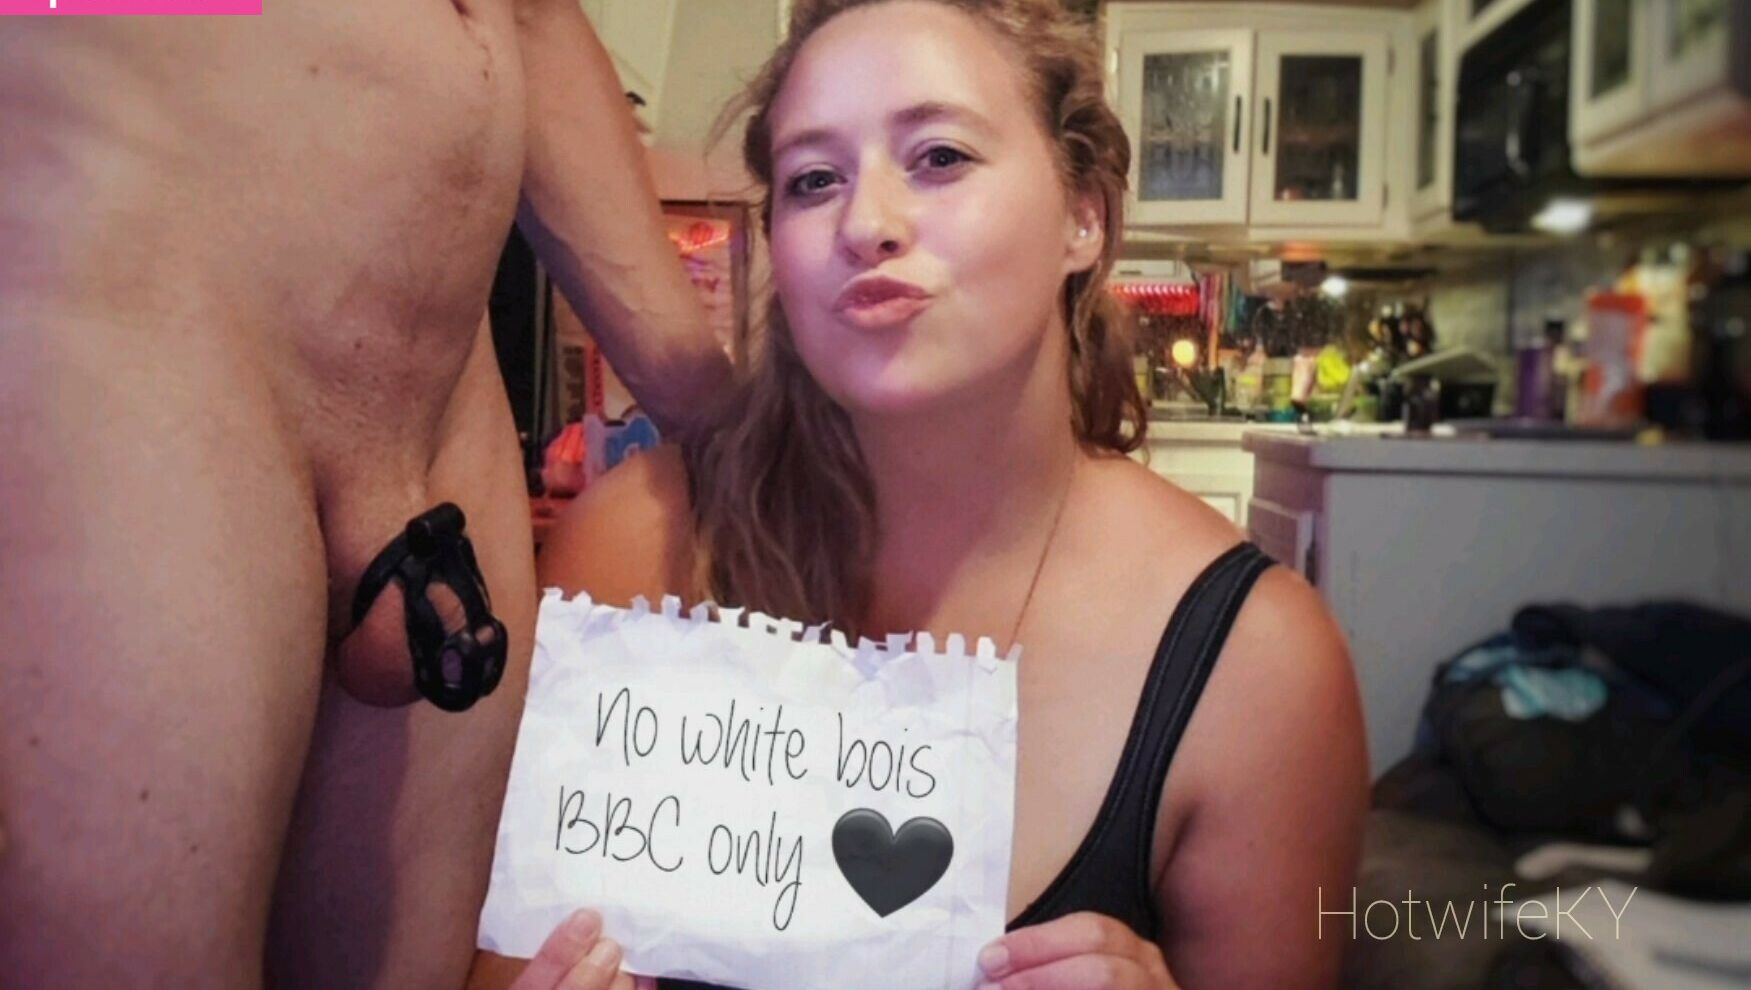 No white bois
BBC only 🖤
HotwifeKY